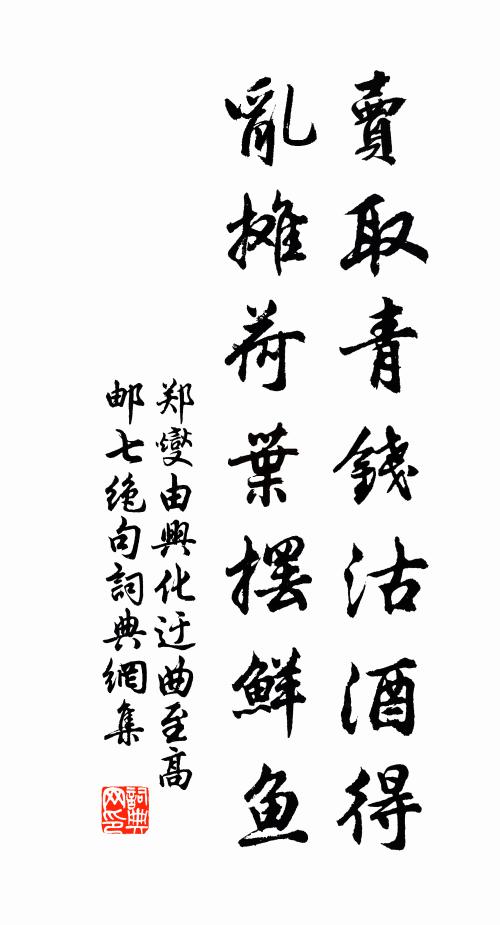 賣取青錢沽酒得
亂攤荷葉擺鮮魚
郑燮由興化迂曲至高
邮七绝句詞典網集
詞典网印